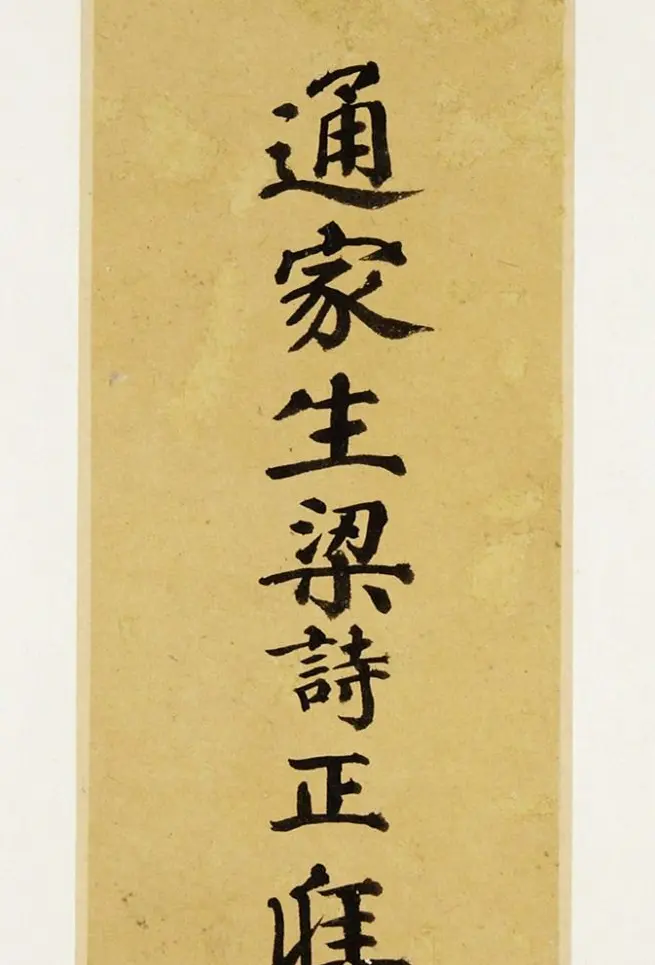 通家生梁詩正